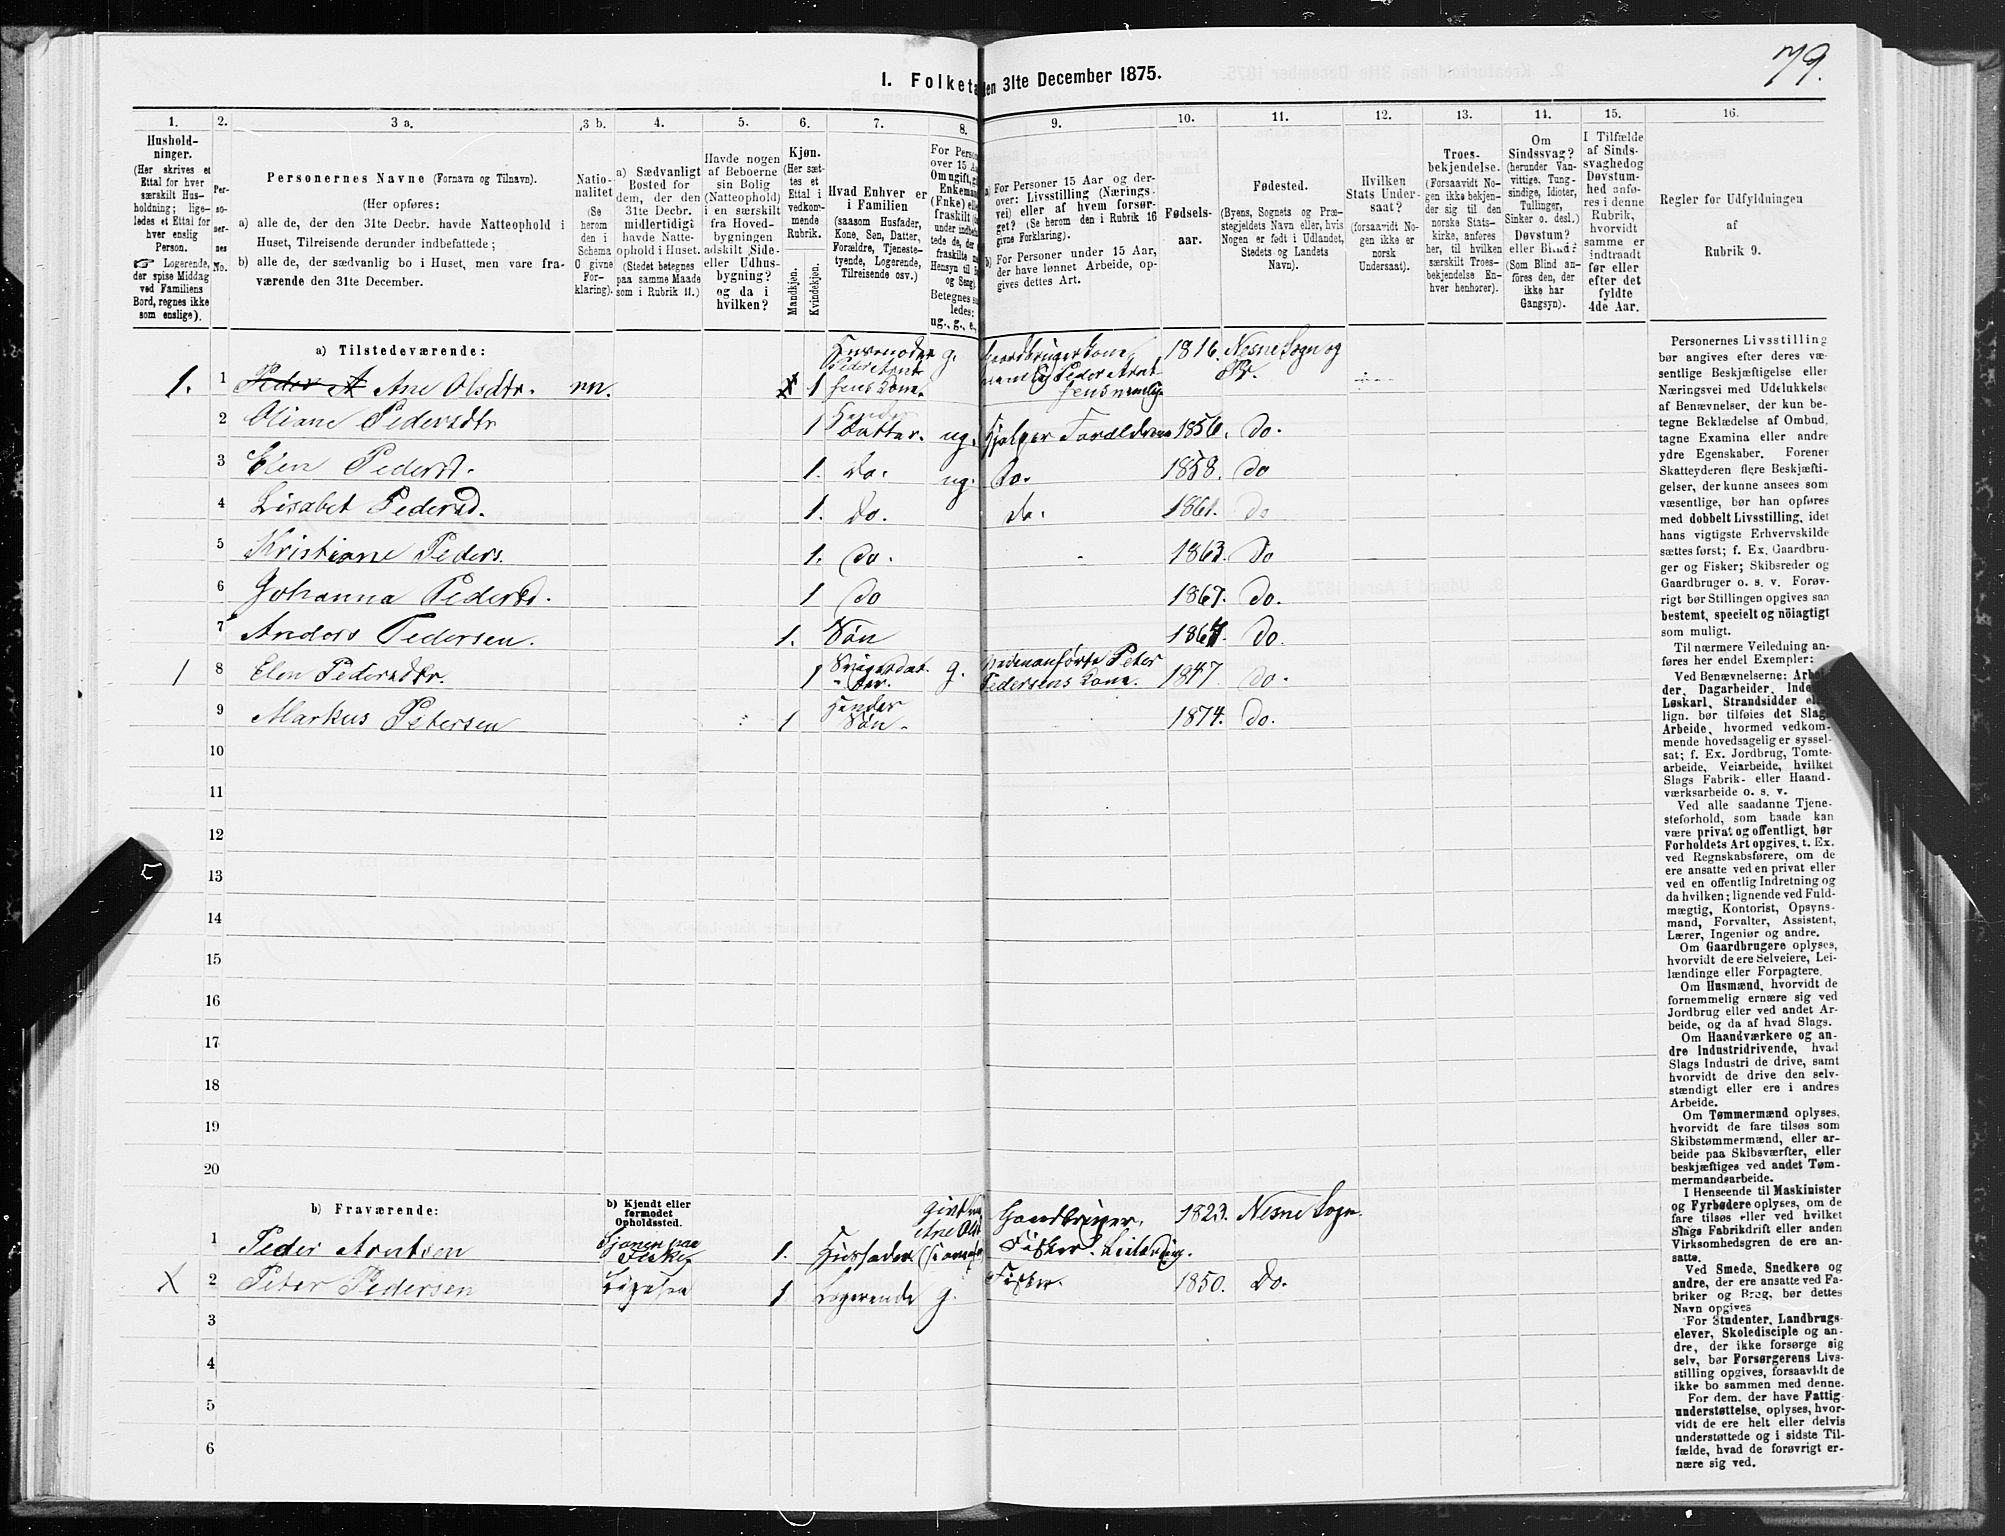 79.
1. Folketæ
den 31te December 1875.
1.
2.
3 a.
3 b.
4.
5.
6.
7.
8.
9.
10.
11.
12.
13.
14.
15.
16.
Hushold-
ninger.
(Her skrives et
Ettal for hver
særskilt Hus-
holdning; lige-
ledes et Ettal for
hver enslig
Person.
☞ Logerende,
der spise Middag
ved Familiens
Bord, regnes ikke
som enslige).
Per-
so-
ner-
nes
No.
Personernes Navne (Fornavn og Tilnavn).
(Her opføres:
a) alle de, der den 31te Decbr. havde Natteophold i
Huset, Tilreisende derunder indbefattede;
b) alle de, der sædvanlig bo i Huset, men vare fra-
værende den 31te December.
Natio-
nalitet
(Se
herom
den i
Schema
O givne
For-
klaring).
a) Sædvanligt
Bosted for
dem, der den
31te Decbr.
midlertidigt
havde Natte-
ophold i Huset.
(Stedet betegnes
paa samme Maade
som i Rubrik 11.)
Havde nogen
af Beboerne
sin Bolig
(Natteophold)
i en særskilt
fra Hoved-
bygningen
adskilt Side-
eller Udhus-
bygning?
og da i
hvilken?
Kjøn.
(Her sæt-
tes et
Ettal i
vedkom-
mende
Rubrik.
Mandkjøn.
Kvindekjøn.
Hvad Enhver er
i Familien
(saasom Husfader,
Kone, Søn, Datter,
Forældre, Tjeneste-
tyende, Logerende,
Tilreisende osv.)
For Person
over 15 Aa
Om ugift, gi
Enkeman
(Enke) ell
fraskilt (
under indbe
tede de, der
fraskilte
Hensyn til b
og Seng).
Betegnes s
ledes:
ug., g., e.,
a) For Personer 15 Aar og der-
over: Livsstilling (Nærings-
vei) eller af hvem forsør-
get? (Se herom den i Rubrik 16
givne Forklaring).
b) For Personer under 15 Aar,
der have lønnet Arbeide, op-
gives dettes Art.
Fødsels-
aar.
Fødested.
(Byens, Sognets og Præ-
stegjeldets Navn eller, hvis
Nogen er født i Udlandet,
Stedets og Landets
Navn).
Hvilken
Stats Under-
saat?
(forsaavidt No-
gen ikke er
norsk
Undersaat).
Troes-
bekjendelse.
(Forsaavidt No-
gen ikke bekjen-
der sig til den
norske Stats-
kirke, anføres
her, til hvilken
særskilt Troes-
bekjendelse En-
hver henhører).
Om
Sindssvag?
(herunder Van-
vittige, Tung-
sindige, Idioter,
Tullinger,
Sinker o. desl.)
Døvstum?
eller Blind?
(Som Blind an-
føres den, der
ikke har
Gangsyn).
I Tilfælde
af Sinds-
svaghed og
Døvstum-
hed anfø-
res i denne
Rubrik,
hvorvidt
samme er
indtraadt
før eller
efter det
fyldte
4de Aar.
Regler for Udfyldningen
af
Rubrik 9.
a) Tilstedeværende:
1. 1 Peder A Ane Olsdtr. nn. 1 Kone. g. Peder 1816. Nesne Sogn og
2 Oliane Pedersdtr 1 Datter. ug. Hjelper Forældrene 1856. Do.
3 Elen Pedersd. 1. Do. ug. Do. 1858. Do
4 Lisabet Pedersd. 1. Do. Do. 1861. Do
5 Kristiane Peders. 1. Do. 1863. Do
6 Johanna Pedersd. 1 Do 1867. Do.
7 Anders Pedersen. 1. Søn Do.
1 8 Elen Pedersdtr. 1 Svigerdat-
ter. g. Nedenanførte Peter
Pedersens Kone. 1847. Do.
9 Markus Petersen 1 Hendes
Søn. 1874. Do.
10
11
12
13
14
15
16
17
18
19
20
b) Fraværende:
b) Kjendt eller
formodet
Opholdssted.
1 Peder Arntsen paa
Fiske 1. Husfader Gaardbruger,
Fisker. Leilænding. 1823. Nesne Sogn.
X 2 Peter Pedersen Ligesaa 1 Logerende g. Fisker. 1850. Do.
3
4
5
6
Personernes Livsstilling
bør angives efter deres væ-
sentlige Beskjæftigelse eller
Næringsvei med Udelukkelse
af Benævnelser, der kun be-
tegne Beklædelse af Ombud,
tagne Examina eller andre
ydre Egenskaber. Forener
Skatteyderen flere Beskjæfti-
gelser, der kunne ansees som
væsentlige, bør han opføres
med dobbelt Livsstilling, idet
hans vigtigste Erhvervskilde
sættes først; f. Ex. Gaardbru-
ger og Fisker; Skibsreder og
Gaardbruger o. s. v. Forøv-
rigt bør Stillingen opgives saa
bestemt, specielt og nöiagtigt
som muligt.
Til nærmere Veiledning an-
føres her endel Exempler:
Ved Benævnelserne: Arbei-
der, Dagarbeider, Inde
Løskarl, Strandsidder el
lign. bør tilføies det Slags
Arbeide, hvormed vedkom-
mende hovedsagelig er syssel-
sat; f. Ex. Jordbrug, Tomte-
arbeide, Veiarbeide, hvilket
Slags Fabrik- eller Haand-
værksarbeide o. s. v.
Ved alle saadanne Tjene-
steforhold, som baade kan
være privat og offentligt, bør
Forholdets Art opgives, t. Ex.
ved Regnskabsførere, om de
ere ansatte ved en privat eller
ved en offentlig Indretning og
da hvilken; lignende ved Fuld-
mægtig, Kontorist, Opsyns-
mand, Forvalter, Assistent,
Lærer, Ingeniør og andre.
Om Gaardbrugere oplyses,
hvorvidt de ere Selveiere, Lei-
lændinge eller Forpagtere.
Om Husmænd, hvorvidt de
fornemmelig ernære sig ved
Jordbrug eller ved andet Ar-
beide, og da af hvad Slags.
Om Haandværkere og an-
dre Industridrivende, hvad
Slags Industri de drive, samt
hvorvidt de drive den selv-
stændigt eller ere i andres
Arbeide.
Om Tømmermænd oplyses,
hvorvidt de fare tilsøs som
Skibstømmermænd, eller ar-
beide paa Skibsværfter, eller
beskjæftiges ved andet Tøm-
mermandsarbeide.
I Henseende til Maskinister
og Fyrbødere oplyses, om de
fare tilsøs eller ved hvilket
Slags Fabrikdrift eller anden
Virksomhedsgren de ere an-
satte.
Ved Smede, Snedkere og
andre, der ere ansatte ved Fa-
briker og Brug, bør dettes
Navn opgives
For Studenter, Landbrugs-
elever, Skoledisciple og an-
dre, der ikke forsørge sig
selv, bør Forsørgerens Livs-
stilling opgives, forsaavidt de
ikke bo sammen med denne.
For dem, der have Fattig-
understøttelse, oplyses, hvor-
vidt de ere helt eller delvis
understøttede og i sidste Til-
fælde, hvad de forøvrigt er-
nære sig ved.